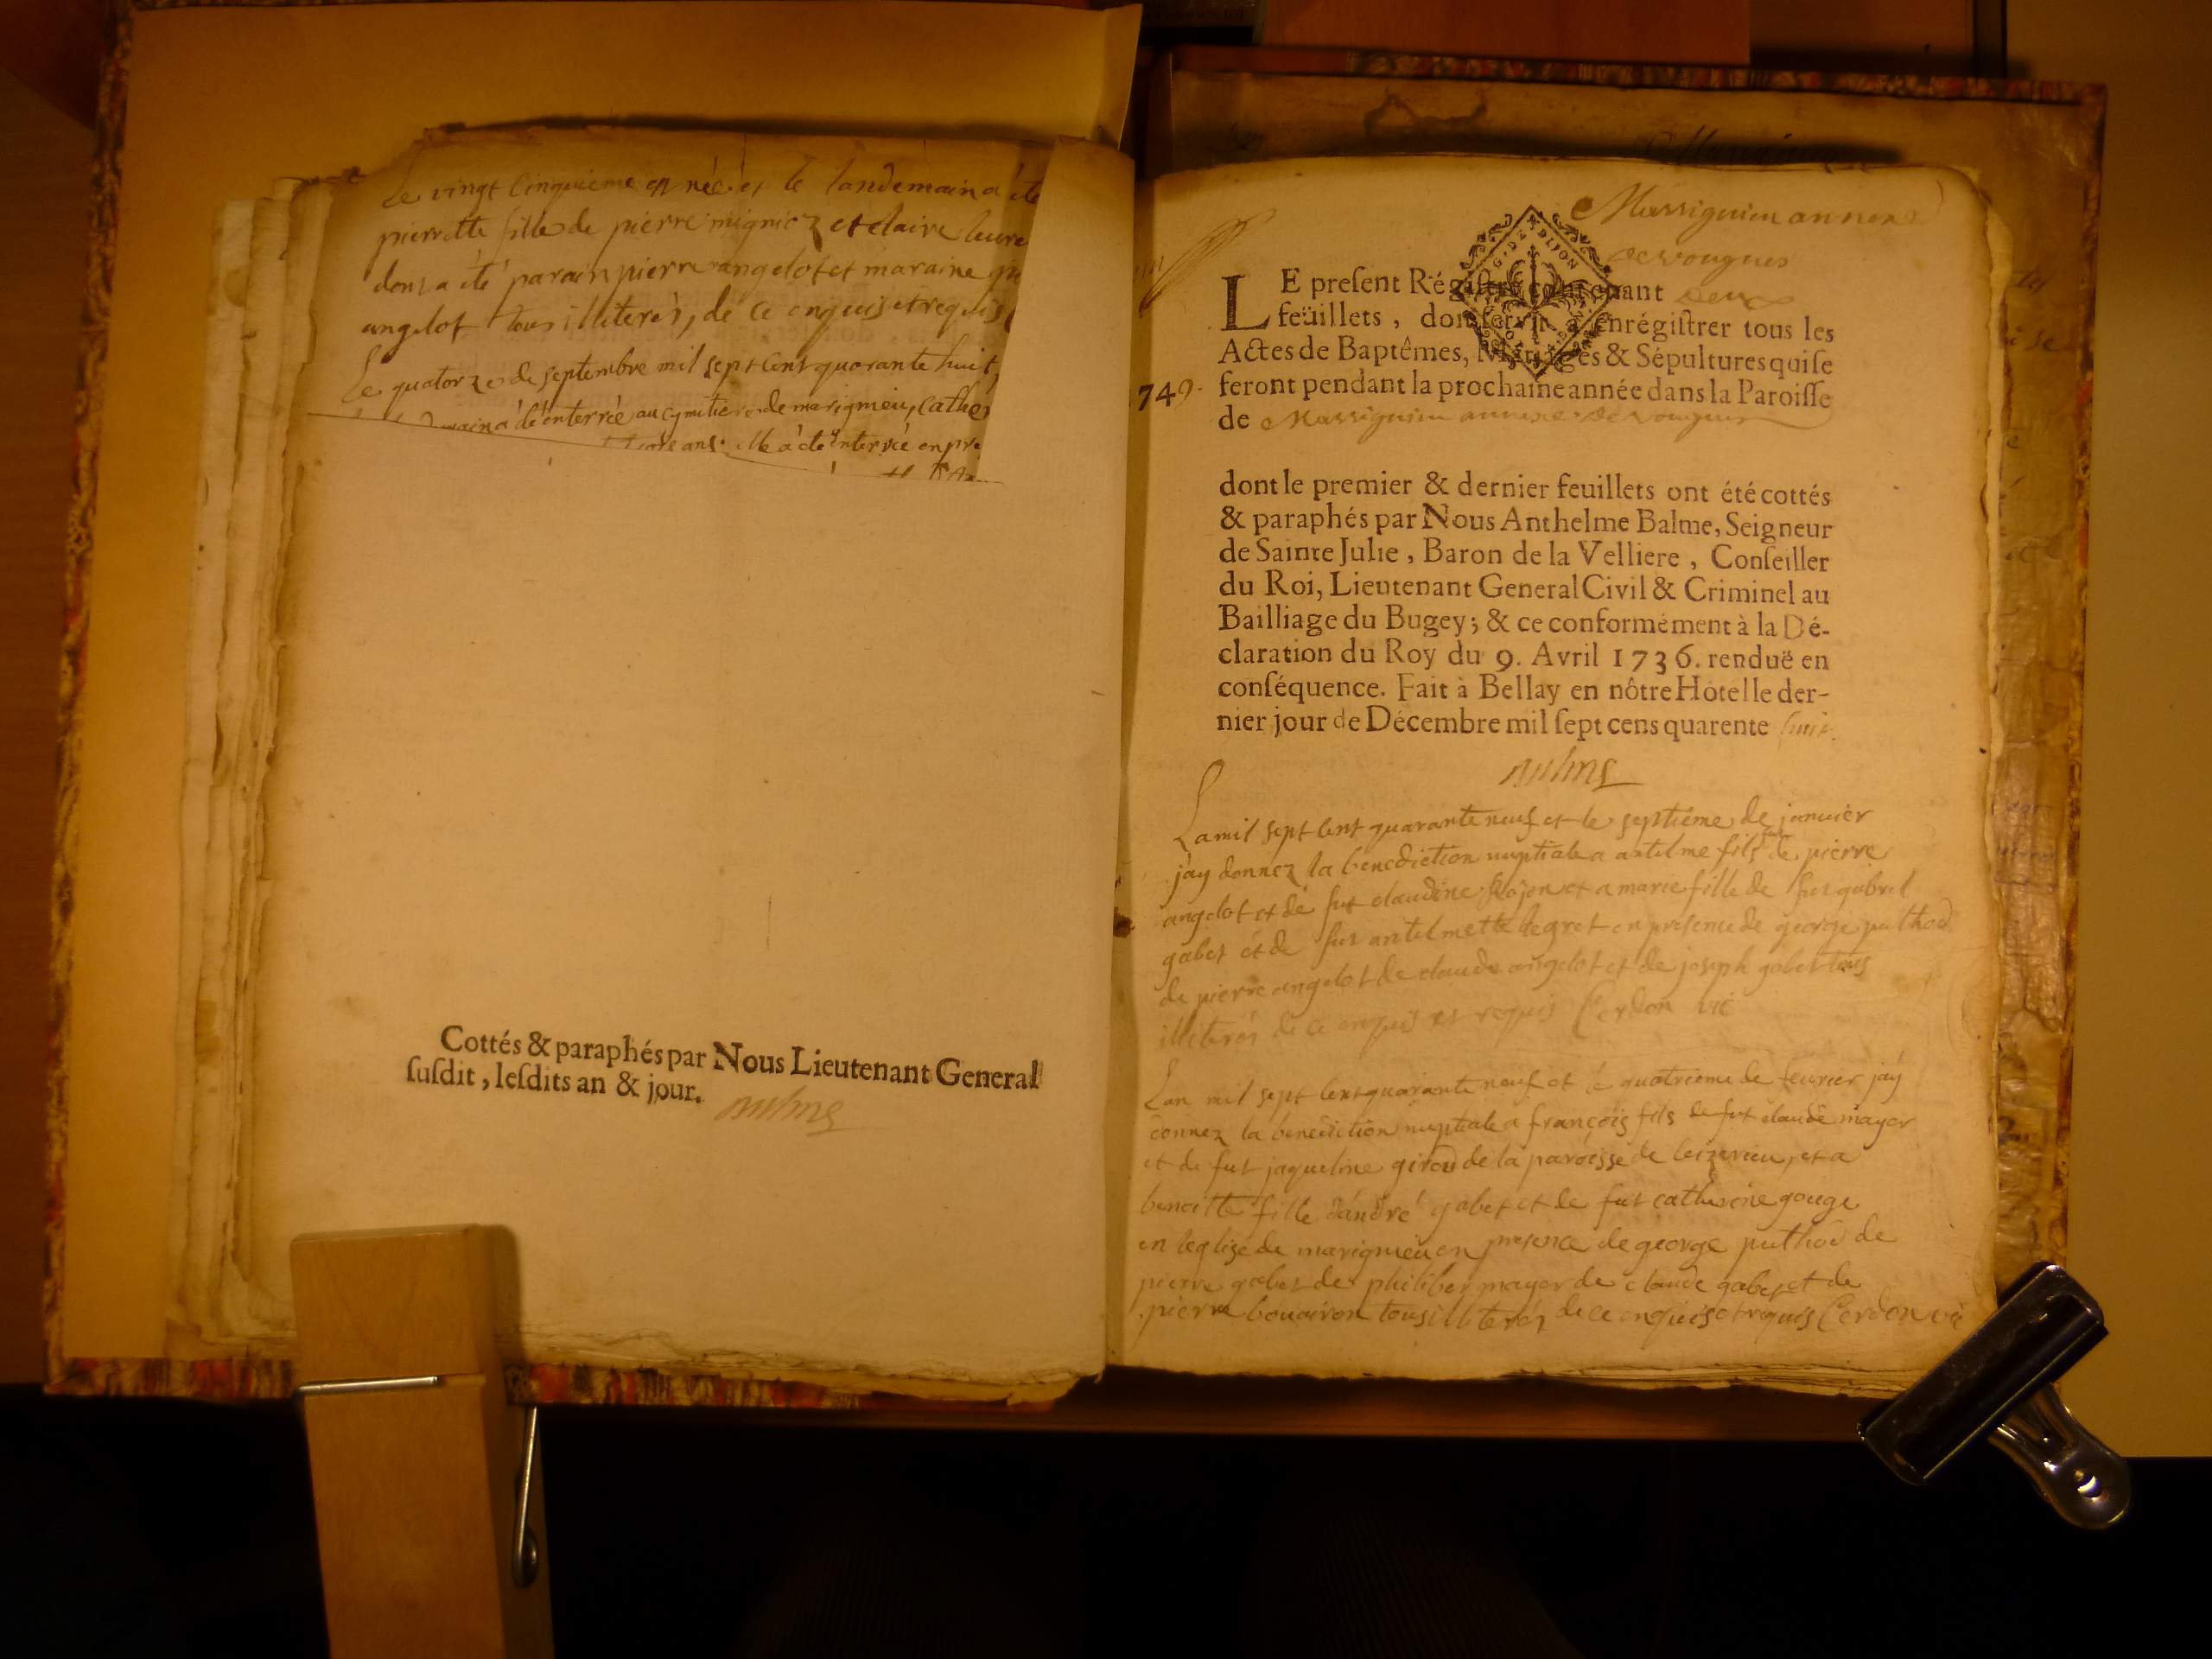 Le vingt cinquieme est née et le landemain a été
pierrette fille de pierre migniez et claire
dont a été parain pierre angelot et maraine
angelot tous illiterés, de ce enquis et requis
Le quatorze de septembre mil sept cent quarante huit,
a été enterrée au cymitiere de marignieu, cathe
ans elle a été enterrée en pre
Cottés & paraphés par Nous Lieutenant General
ſuſdit, leſdits an & jour.
Massignieu annexe
de vongnes
LE preſent Régiſtre contenant deux
feüillets, doit ſervir à enrégiſtrer tous les
Actes de Baptêmes, Mariages & Sépultures qui ſe
749. feront pendant la prochaine année dans la Paroiſſe
de Massignieu annexe de vongnes
dont le premier & dernier feuillets ont été cottés
& paraphés par Nous Anthelme Balme, Seigneur
de Sainte Julie, Baron de la Velliere, Conſeiller
du Roi, Lieutenant General Civil & Criminel au
Bailliage du Bugey; & ce conformément à la Dé-
claration du Roy du 9. Avril 1736. renduë en
conſéquence. Fait à Bellay en nôtre Hôtel le der-
nier jour de Décembre mil ſept cens quarente huit.
Lamil sept cent quarante neuf et le septiéme de janvier
jay donnez la benediction nuptiale a antelme fils de pierre
angelot et de fut claudine et a marie fille de fut gabriel
gabet et de fut antelmette legret en presence de george puthod
de pierre angelot de claude angelot et de joseph gabet tous
illiterés de ce enquis et requis Cerdon vic
Lan mil sept cent quarante neuf et le quatrieme de fevrier jáy
donnez la benediction nuptiale a françois fils de fut claude mayer
et de fut jaqueline girod de la paroisse de ceizerieu, et a
benoitte fille dándré gabet et de fut catherine gouge
en leglise de marignieu en presence de george puthod de
pierre gabet de philiber mayer de claude gabet et de
pierre bouairon tous illiterés de ce enquis et requis Cerdon vic